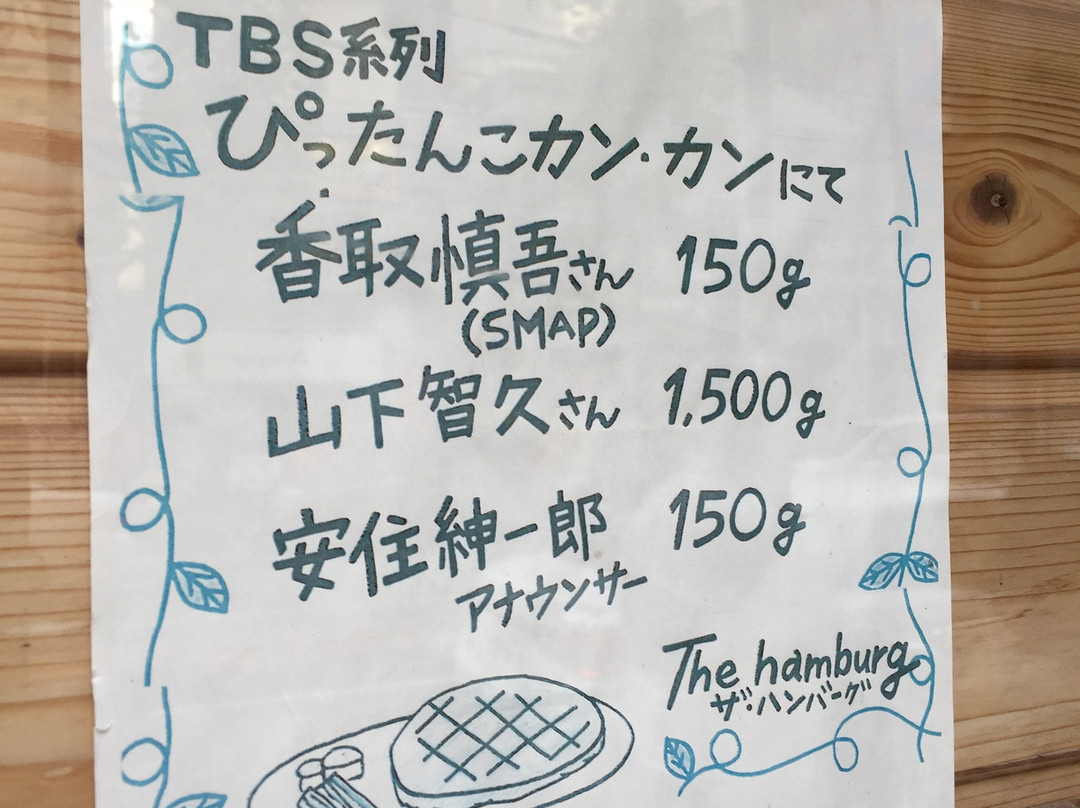 TBS系列
ぴったんこカン・カンにて
香取慎吾さん 150g
(SMAP)
山下智久さん 1,500g
安住紳一郎 150g
アナウンサー
The hamburg
ザ・ハンバーグ